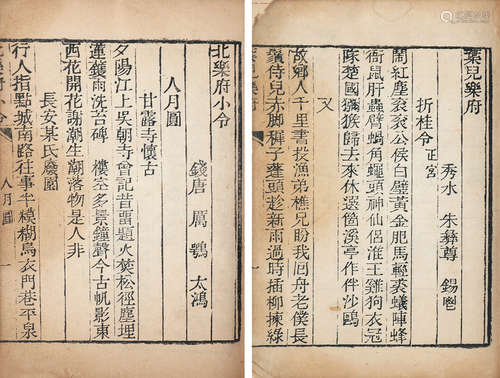 葉兒樂府
秀水 朱彝尊 錫鬯
折桂令 正宮
鬧紅塵衮衮公侯白璧黃金肥馬輕裘蟻陣蜂
衙鼠肝蟲臂蝸角蠅頭神仙侶淮王雞狗衣冠
隊楚國獼猴歸去來休選箇溪亭作伴沙鷗
又
故鄉人千里書投漁弟樵兄盼我囘舟老僕長
鬚侍兒赤脚稚子蓬頭趁新雨過時插柳揀綠
葉兒樂府
北樂府小令
錢唐 厲鶚 太鴻
人月圓
甘露寺懷古
夕陽江上吳朝寺曾記昔畱題火焚松徑塵埋
蓮鑊雨洗苔碑 樓空多景鐘聲今古帆影東
西花開花謝潮生潮落物是人非
長安某氏廢園
行人指點城南路往事半模糊烏衣門巷平泉
北樂府小令 人月圓 一